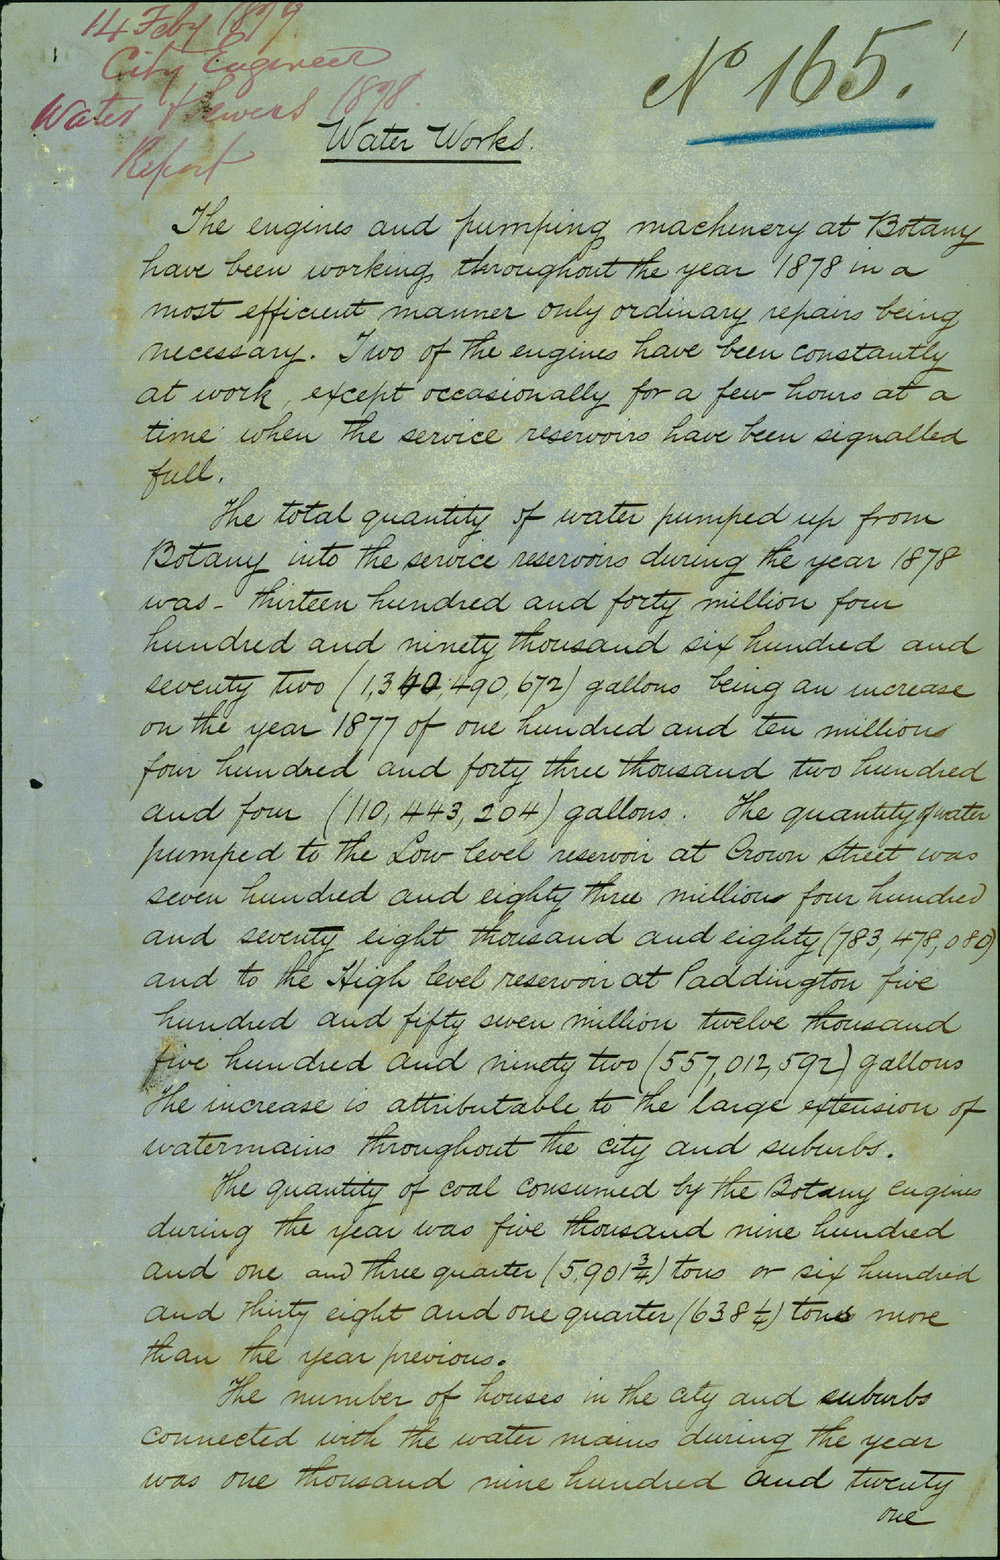 14 Feby 1879
City Engineer
Water & Sewers 1878.
Report
No 165.
1
Water Works.
The engines and pumping machinery at Botany
have been working throughout the year 1878 in a
most efficient manner only ordinary repairs being
necessary. Two of the engines have been constantly
at work, except occasionally for a few hours at a
time when the service reservoirs have been signalled
full.
The total quantity of water pumped up from
Botany into the service reservoirs during the year 1878
was - thirteen hundred and forty million four
hundred and ninety thousand six hundred and
seventy two (1,340,490,672) gallons being an increase
on the year 1877 of one hundred and ten millions
four hundred and forty three thousand two hundred
and four (110,443,204) gallons. The quantity of water
pumped to the Low level reservoir at Crown Street was
seven hundred and eighty three millions four hundred
and seventy eight thousand and eighty (783,478,080)
and to the High level reservoir at Paddington five
hundred and fifty seven million twelve thousand
five hundred and ninety two (557,012,592) gallons
The increase is attributable to the large extension of
watermains throughout the city and suburbs.
The quantity of coal consumed by the Botany engines
during the year was five thousand nine hundred
and one and three quarter (5,901 3/4) tons or six hundred
and thirty eight and one quarter (638 1/4) tons more
than the year previous.
The number of houses in the city and suburbs
connected with the water mains during the year
was one thousand nine hundred and twenty
one